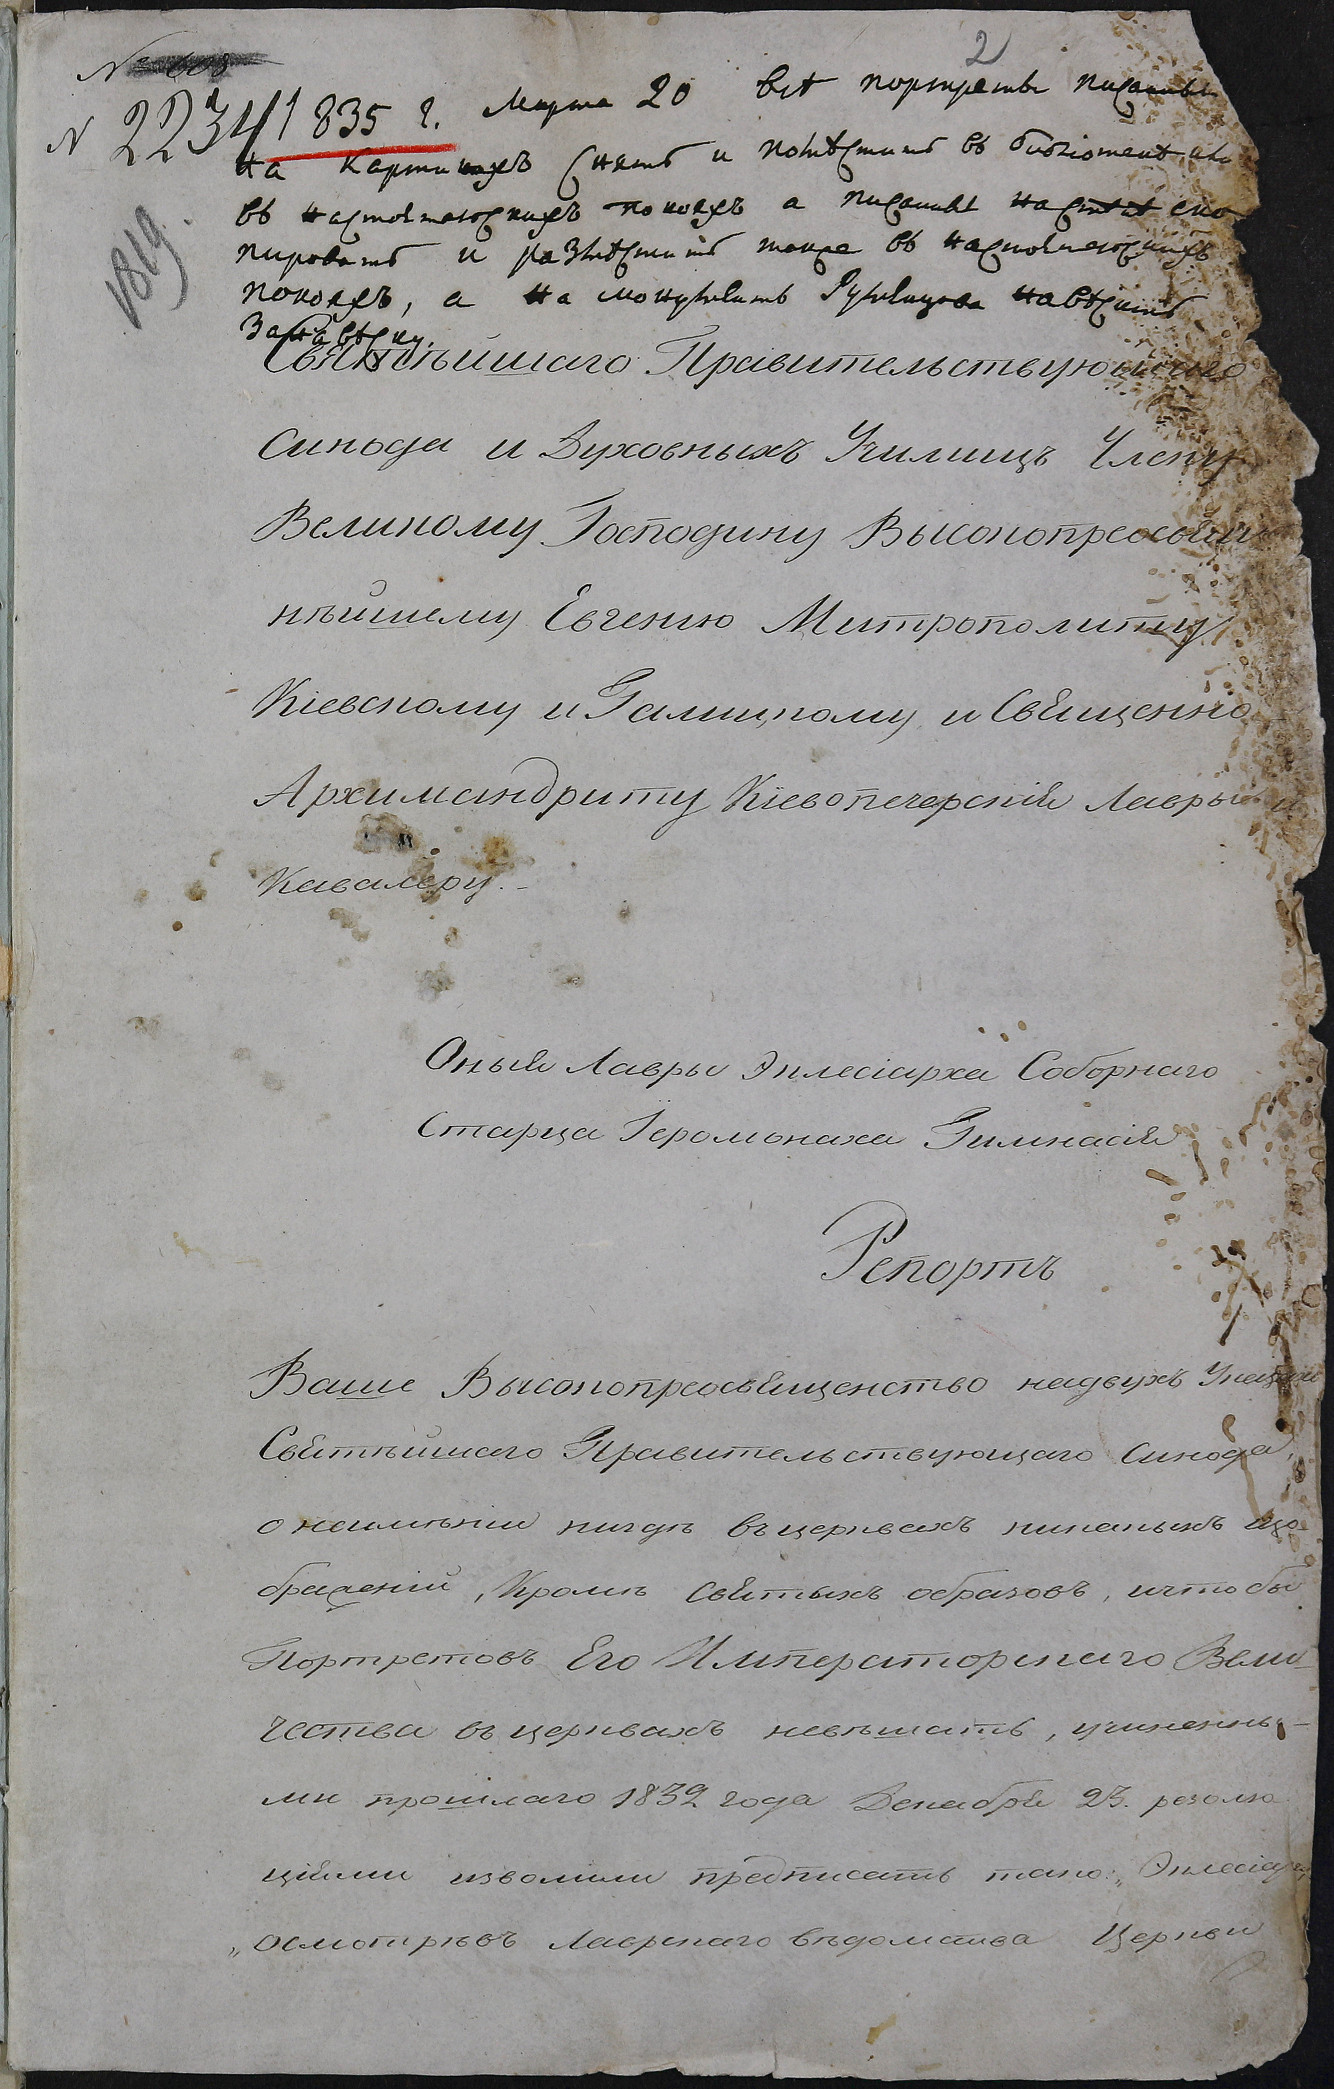 2
№ 608
N 2234 1835 г. Марта 20 всѣ портреты писанные
на картинахъ снять и помѣстить въ библіотекѣ или
въ настоятельскихъ покояхъ а писанные на стѣнѣ ско
пировать и размѣстить также въ настоятельскихъ
покояхъ, а на монументъ Румянцова навѣсить
занавѣску.
1819.
Святѣйшаго Правительствующаго
Синода и Духовныхъ Училищъ Члену
Великому Господину Высокопреосвящен
нѣйшему Евгению Митрополиту
Кіевскому и Галицкому и Священно
Архимандриту Кіевопечерскія Лавры и
Кавалеру.-
Оныя Лавры Эклесіарха Соборнаго
Старца Іеромонаха Гимнасія
Репортъ
Ваше Высокопреосвященство на двухъ Указахъ
Святѣйшаго Правительствующаго Синода,
о неимѣніи нигдѣ въ церквахъ никакихъ изо-
браженій, Кромѣ Святыхъ образовъ, и чтобы
Портретовъ Его Императорскаго Вели-
чества въ церквахъ невѣшать, учиненны-
ми прошлаго 1832 года Декабря 23. резолю
ціями изволили предписать тако: „Эклесіарху
„осмотрѣвъ Лаврскаго вѣдомства Церкви